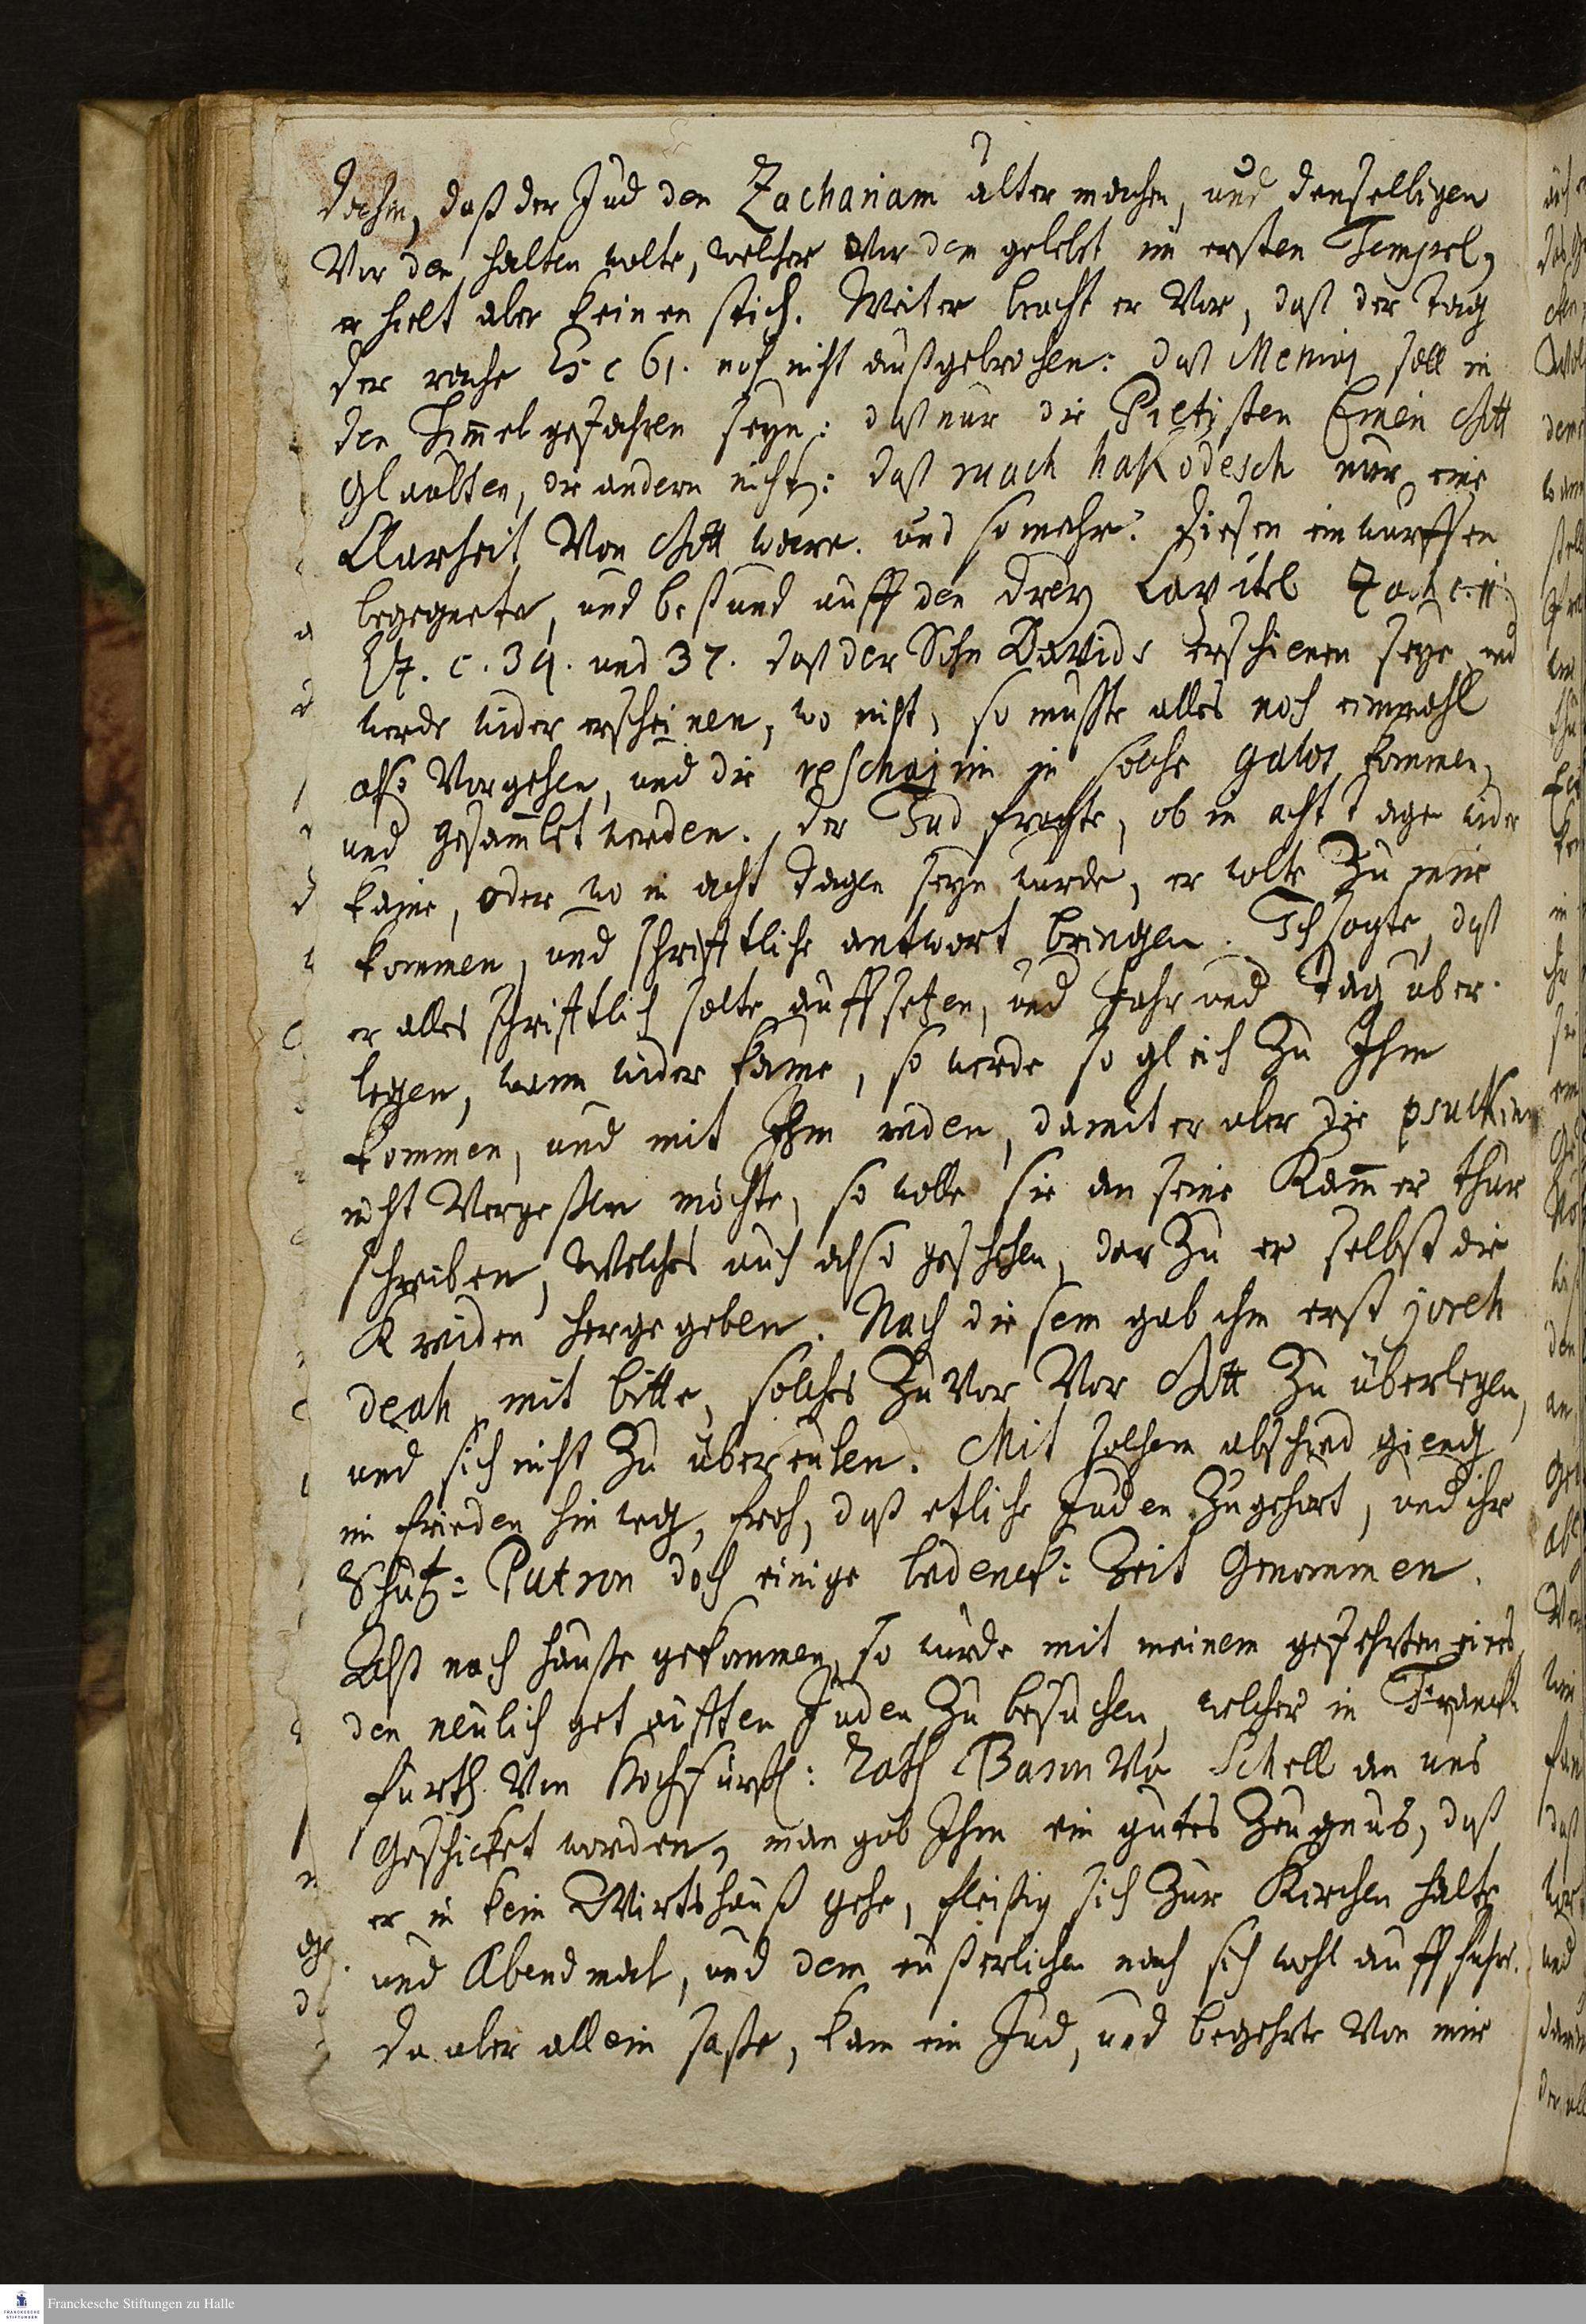 dahin, daß der Jud den Zachariam älter machen, und denselbigen
Vor den halten wolte, welcher Vor dem gelebt im ersten Tempel,
er hielt aber keinen stich. Weiter bracht er Vor, daß der tag
der rache Es c 61. noch nicht außgebrochen: daß soll in
den Himmel gefahren seyn: daß nur die Pietisten Einen Gott
glaubten, die andern nicht: daß ruach haKodesch nur eine
Klarheit Von Gott were. und so mehr. diesen einwurffen
begegnete, und bestund auff den drey Capitel Zach c. 11.
Ez. c. 34. und 37. daß der Sohn Davids erschienen seye und
werde wider erscheinen, wo nicht, so muste alles noch einmahl
also Vorgehen, und die reschajim in solche galos kommen,
und gesamlet werden. der Jud fragte, ob in acht tage wider
käme, oder wo in acht tagen seyn wurde, er wolte Zu mir
kommen, und schrifftliche antwort bringen. Ich sagte, daß
er alles schrifftlich solte auffsetzen, und Jahr und Tag uber-
legen, wann wider käme, so werde so gleich Zu Ihm
kommen, und mit Ihm reden, damit er aber die psukim
nicht Vergessen möchte, so wolle sie an seine Kammer thur
schreiben, Welches auch also geschehen, dar Zu er selbst die
Kreiden hergegeben. Nach diesem gab ihm erst joreh
deah mit bitte, solches Zuvor Vor Gott Zu überlegen,
und sich nicht Zu übereulen. Mit solchem abschied gieng
im frieden hinweg, froh, daß etliche Juden Zugehört, und ihr
Schutz: Patron doch einige bedenck: Zeit Genommen.
Alß nach hauße gekommen, so wurde mit meinem gefehrten eines
den neulich getäufften Juden Zu besuchen, welcher in Franck
furth Von Hochfürstl: Rath Baron Von Schell an uns
Geschicket worden, man gab Ihm ein gutes Zeugnus, daß
er in kein Wirtshauß gehe, fleißig sich Zur Kirchen halte
und Abendmal, und dem eußerlichen nach sich wohl auffführe.
da aber allein saße, kam ein Jud, und begehrte Von mir
Franckesche Stiftungen zu Halle